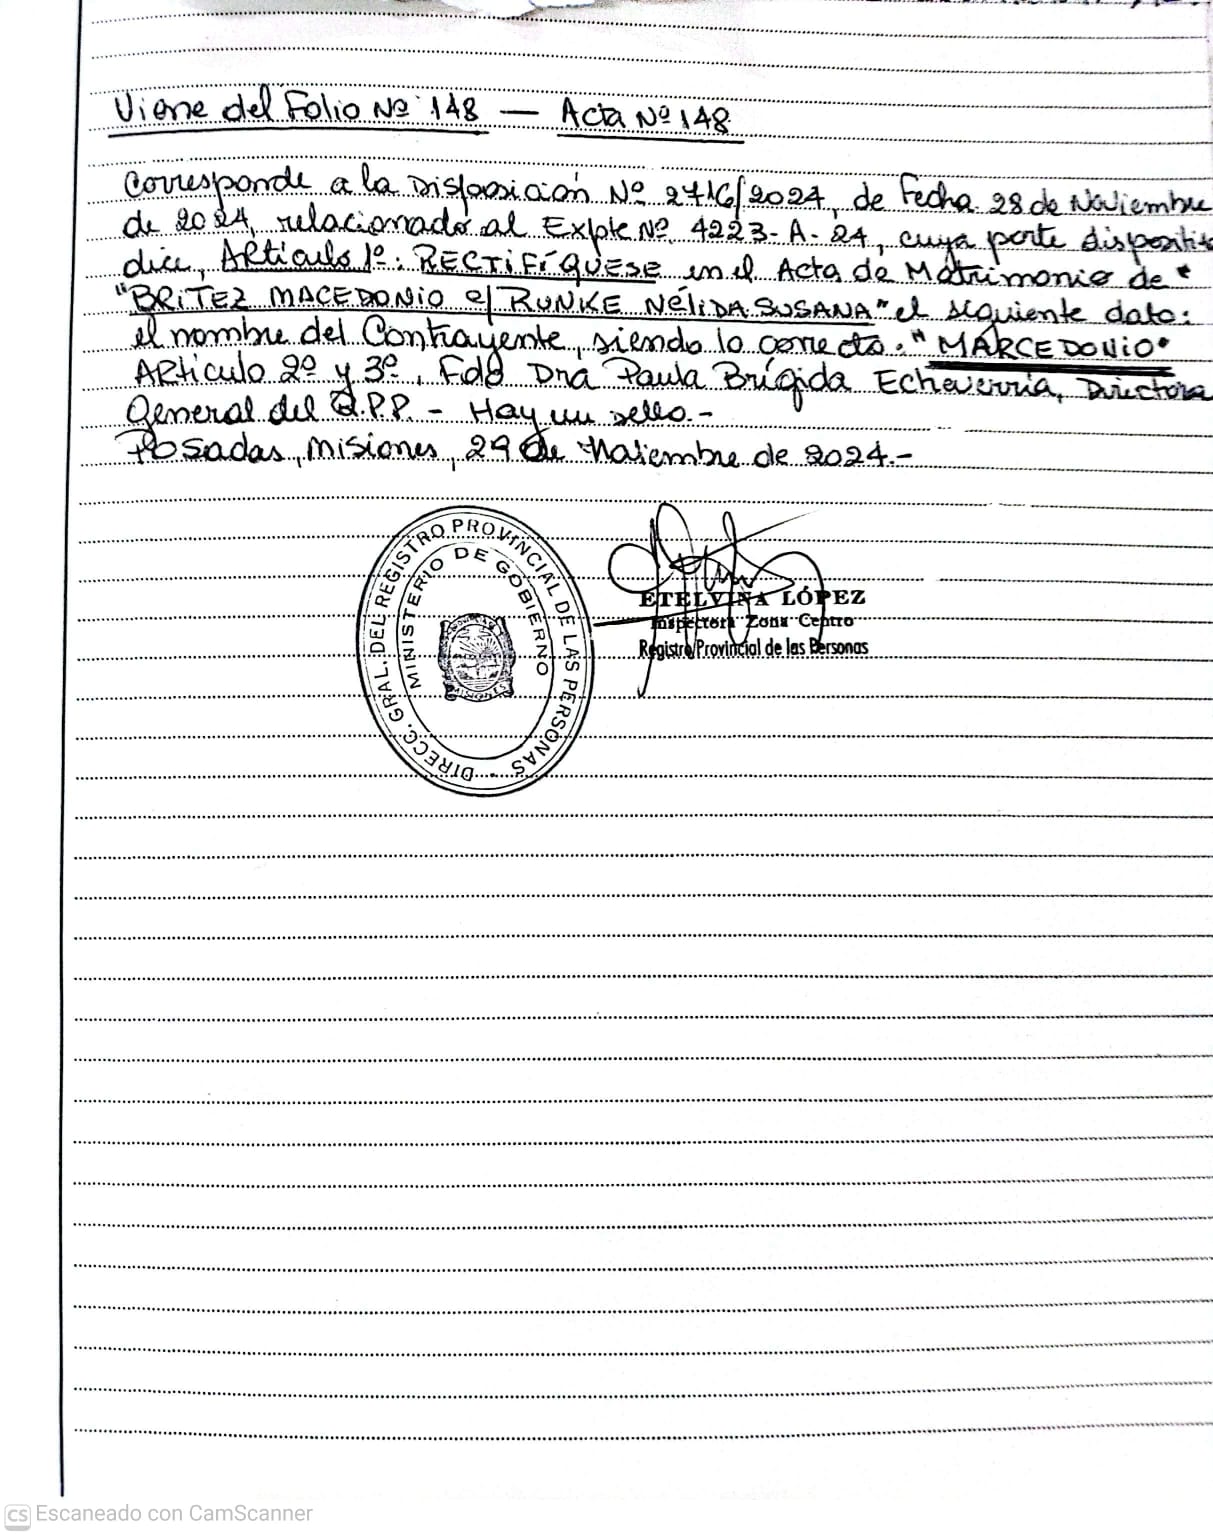 Viene del Folio Nº 148 — Acta Nº 148
Corresponde a la Disposición Nº 2716/2024, de Fecha 28 de Noviembre
de 2024, relacionado al Expte Nº 4223-A-24, cuya parte dispositiva
dice, Artículo 1º: RECTIFÍQUESE en el Acta de Matrimonio de
"BRITEZ MACEDONIO c/ RUNKE NÉLIDA SUSANA" el siguiente dato:
el nombre del Contrayente, siendo lo correcto: "MARCEDONIO"
Artículo 2º y 3º, Fdo Dra Paula Brígida Echeverría, Directora
General del R.P.P. - Hay un sello.-
Posadas, Misiones, 29 de Noviembre de 2024.-
DIRECC. GRAL. DEL REGISTRO PROVINCIAL DE LAS PERSONAS
MINISTERIO DE GOBIERNO
MISIONES
ETELVINA LÓPEZ
Inspectora Zona Centro
Registro Provincial de las Personas
CS Escaneado con CamScanner